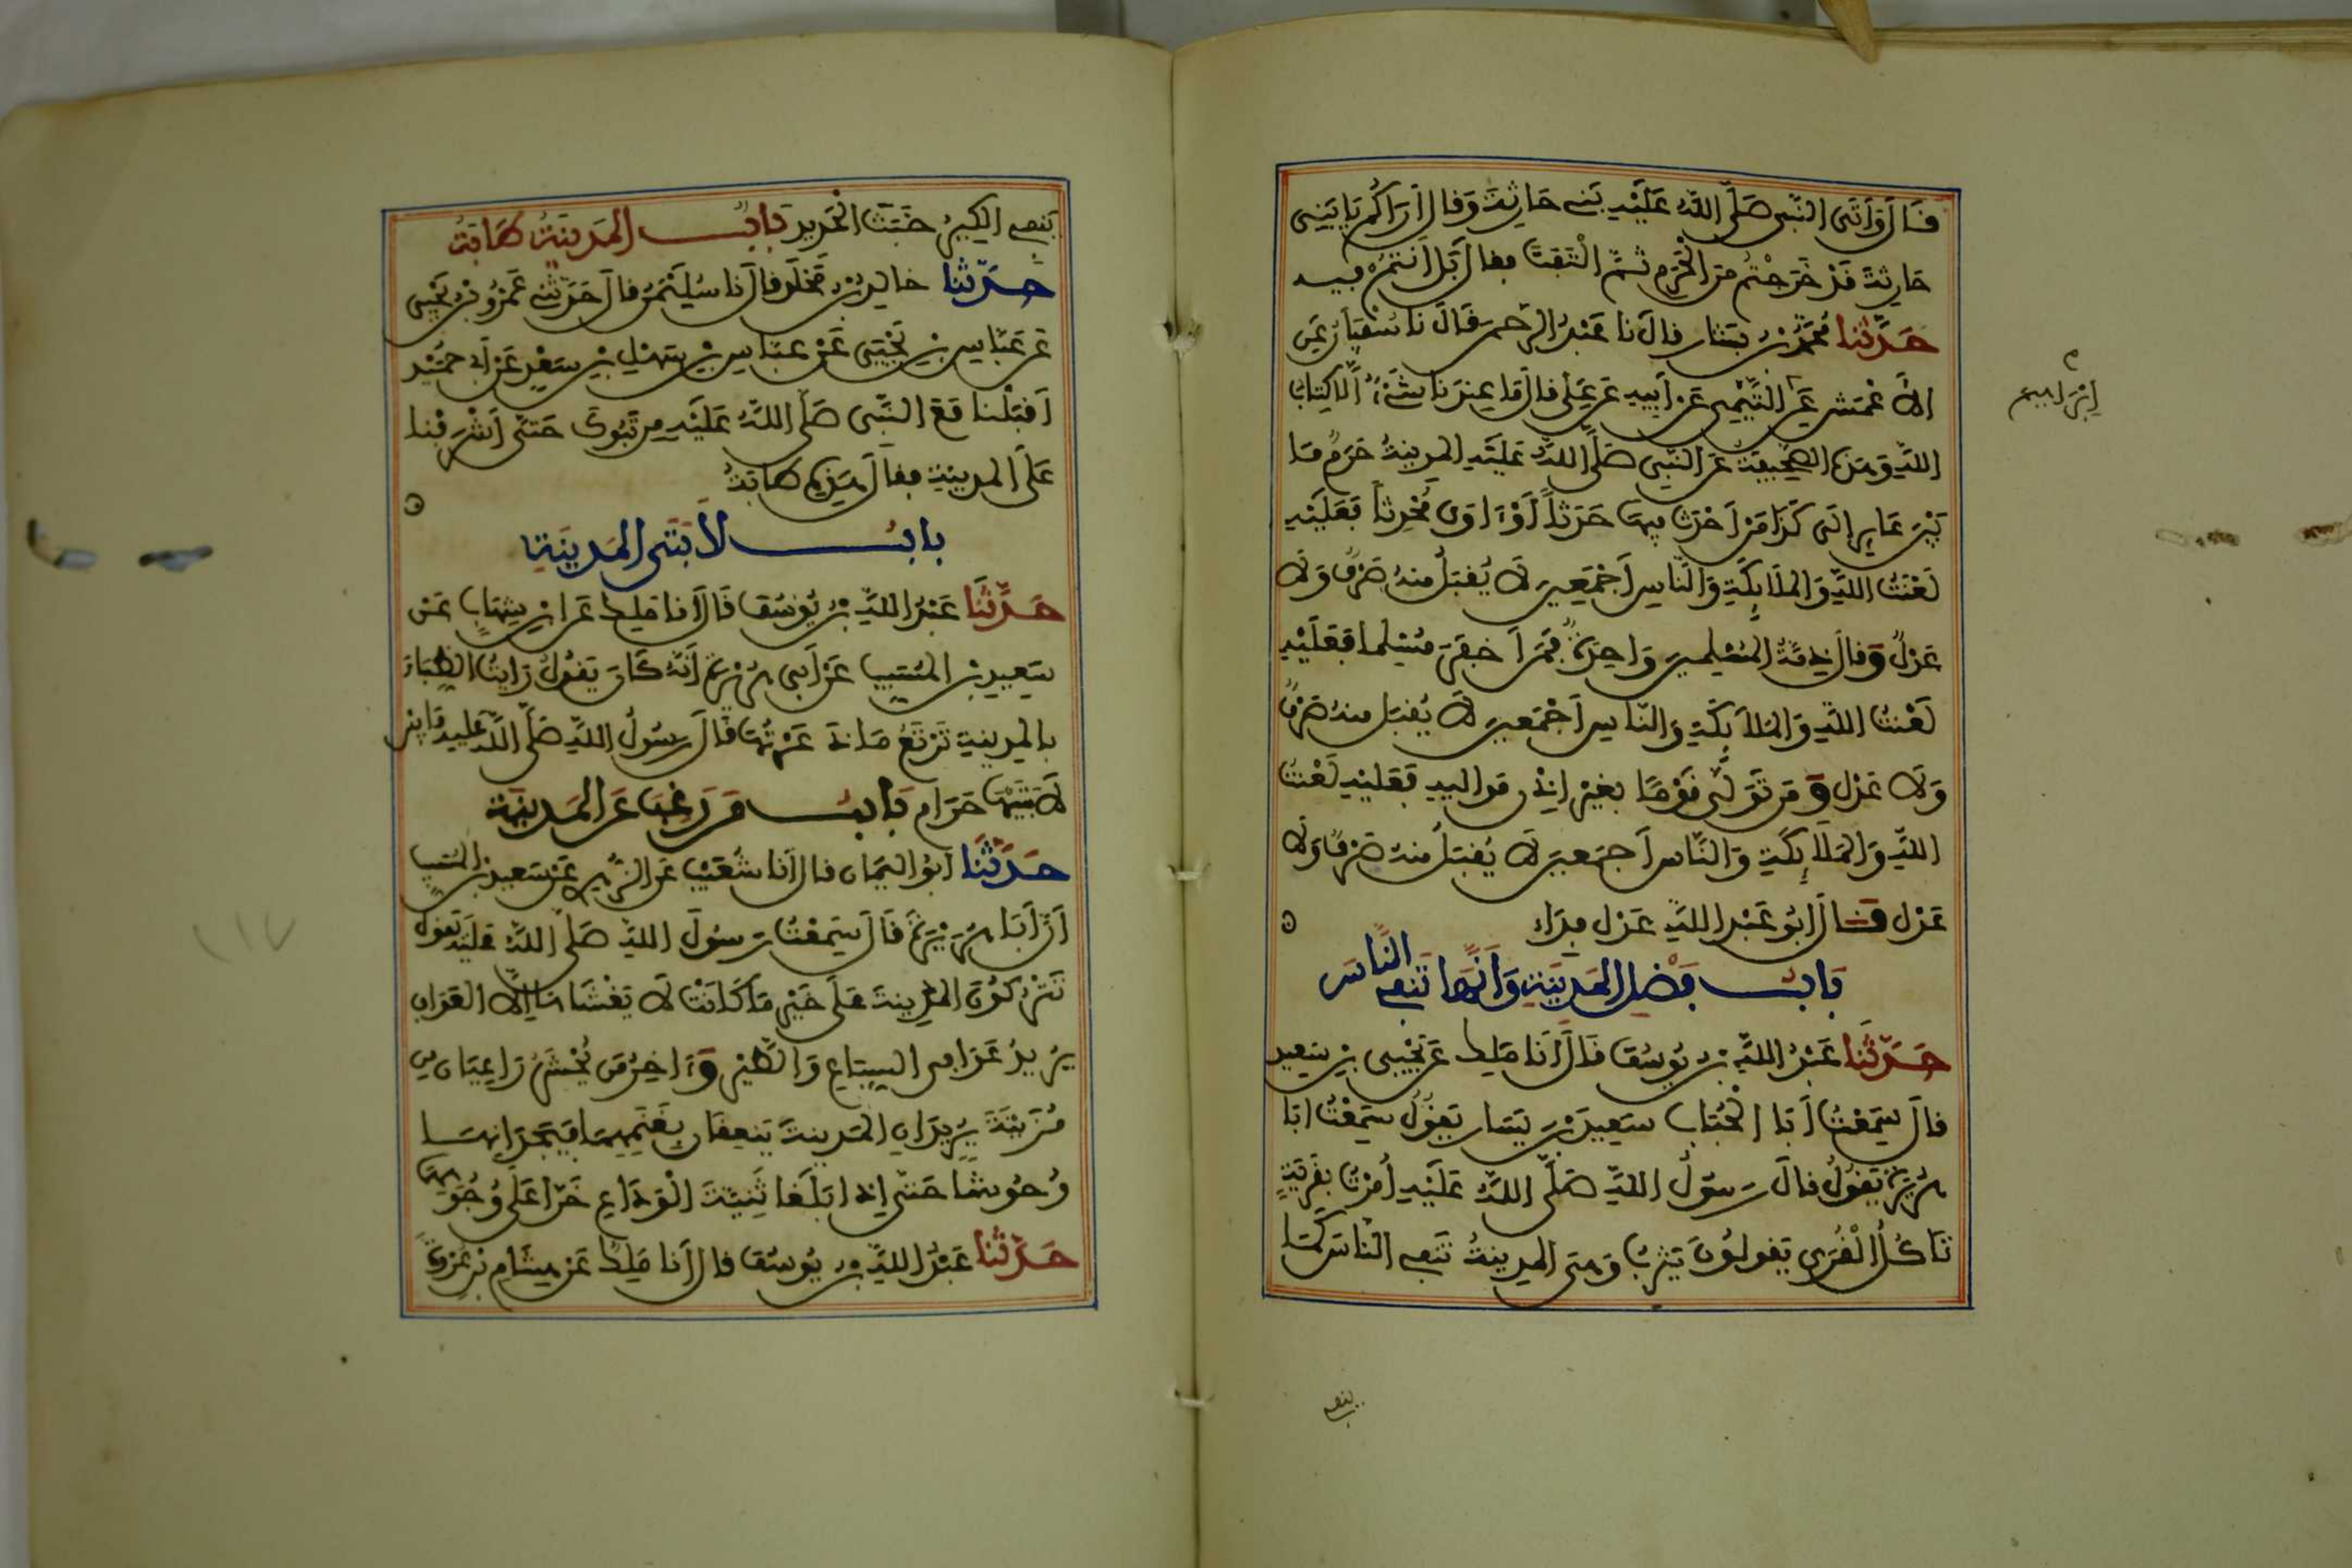 قَالَ وَأَتَى النَّبِي صَلَّى اللَّهُ عَلَيْهِ بَنِي حَارِثَةَ وَقَالَ أَرَاكُمْ يَا بَنِي
حَارِثَةَ قَدْ خَرَجْتُم مِنَ الْحَرَمِ ثُمَّ الْتَفَتَ فقال بَلْ أَنتُمْ فيه
حَدَّثَنَا مُحَمَّدُ بْنُ بَشَّارٍ قال نا عَبْدُ الرَّحمن قَالَ نا سُفْيَانُ عَنِ
الأَعْمَشِ عَنْ التَّيْمِي عَنْ أَبِيهِ عَنْ عَلِي قال مَا عِندَنَا شَيْءٌ إلَّا كِتَابُ
إِبْرَاهِيم
اللَّهِ وَهَذِهِ الصَّحِيفَةُ عَنِ النَّبِي صَلَّى اللَّهُ عَلَيْهِ المَدِينَةُ حَرَمٌ مَا
بَيْنَ عَايِرٍ إِلَى كَذَا مَنْ أَحْدَثَ فِيهَا حَدَثاً أَوْ ءَاوَى مُحْدِثاً فَعَلَيْهِ
لَعْنَتُ اللَّهِ وَالمَلَائِكَةِ وَالنَّاسِ أَجْمَعِينَ لَا يُقْبَلُ مِنهُ صَرْفٌ وَلَا
عَدْلٌ وَقال ذِمَّةُ المُسْلِمِينَ وَاحِدَةٌ فَمَنْ أَخفَرَ مُسْلِما فَعَلَيْهِ
لَعْنَتُ اللَّهِ وَالمَلَائِكَةِ وَالنَّاسِ أَجْمَعِينَ لَا يُقبَل مِنهُ صَرْفٌ
وَلَا عَدْل وَمَن تَوَلَّى قَوْمًا بِغَيْرِ إِذْنِ مَوَالِيهِ فَعَلَيْهِ لَعْنَتُ
اللَّهِ وَالمَلَائِكَةِ وَالنَّاسِ أَجمَعِينَ لَا يُقبَلُ مِنهُ صَرْفٌ وَلَا
عَدْل قَالَ أَبُو عَبْدِ اللَّهِ عَدْل فِدَاء
بَابُ فَضْلِ المَدِينَةِ وَأَنَّهَا تَنفِي النَّاسَ
حَدَّثَنَا عَبْدُ اللَّهِ بْنُ يُوسُفَ قَالَ أَنَا مَلِكٌ عَنْ يَحْيَى بْنِ سَعِيد
قال سَمِعْتُ أَبَا الْحُبَابِ سَعِيدَ بْنَ يَسَارٍ يَقُولُ سَمِعْتُ أَبَا
هُرَيْرَةَ يَقُولُ قال رَسُولُ اللَّهِ صَلَّى اللَّهُ عَلَيْهِ أُمِرْتُ بِقَرْيَةٍ
تَأْكُلُ الْقُرَى يَقُولُونَ يَثْرِبُ وَهِيَ المَدِينَةُ تَنفِي النَّاسَ كَمَا
ينفي
يَنفِي الكِيرُ خَبَثَ الْحَدِيدِ بَابُ المَدِينَةُ طَابَةُ
حَدَّثَنَا خالِدُ بْنُ مَخْلَدٍ قال نا سُلَيْمَنُ قال حَدَّثَنِي عَمْرُو بْنُ يَحْيَى
عَنْ عَبَّاسِ بْنِ يَحْيَى عَنْ عَبَّاسِ بْنِ سَهْلِ بْنِ سَعْدٍ عَنْ أَبِي حُمَيْد
أَقْبَلْنَا مَعَ النَّبِي صَلَّى اللَّهُ عَلَيْهِ مِن تَبُوكَ حَتَّى أَشْرَفْنَا
عَلَى المَدِينَةِ فقال هَذِهِ طَابَةُ
بابُ لَابَتَيِ المَدِينَةِ
حَدَّثَنَا عَبْدُ اللَّهِ بْنُ يُوسُفَ قَالَ أَنا مَلِكٌ عَنِ ابْنِ شِهَابٍ عَنْ
سَعِيدِ بْنِ المُسَيِّبِ عَنْ أَبِي هُرَيْرَةَ أَنَّهُ كَانَ يَقُولُ لو رَأَيْتُ الظِّبَاءَ
بالمَدِينَةِ تَرْتَعُ مَا ذَعَرْتُهَا قَالَ رَسُولُ اللَّهِ صَلَّى اللَّهُ عَلَيْهِ مَا بَيْنَ
لَابَتَيْهَا حَرَام بَابُ مَن رَغِبَ عَنِ المَدِينَةِ
حَدَّثَنَا أَبُو اليَمَانِ قال أَنا شُعَيْبٌ عَنِ الزُّهْرِي عَنْ سَعِيدِ بْنِ المُسَيِّبِ
أَنَّ أَبَا هُرَيْرَةَ قَالَ سَمِعْتُ رَسُولَ اللَّهِ صَلَّى اللَّهُ عَلَيْهِ يَقُولُ
تَتْرُكُونَ المَدِينَةَ عَلَى خَيْرِ مَا كَانَتْ لَا يَغْشَاهَا إلَّا العَوَافِ
يُرِيدُ عَوَافِيَ السِّبَاعِ وَالطَّيْرِ وَءَاخِرُ مَن يُحْشَرُ رَاعِيَانِ مِن
مُزَيْنَةَ يُرِيدَانِ المَدِينَةَ يَنعِقَانِ بِغَنَمِهِمَا فَيَجِدَانِهَا
وُحُوشًا حَتَّى إِذَا بَلَغَا ثَنِيَّةَ الْوَدَاعِ خَرَّا عَلَى وُجُوهِهِمَا
حَدَّثَنَا عَبْدُ اللَّهِ بْنُ يُوسُفَ قال أَنا مَلِكٌ عَنْ هِشَامِ بْنِ عُرْوَةَ